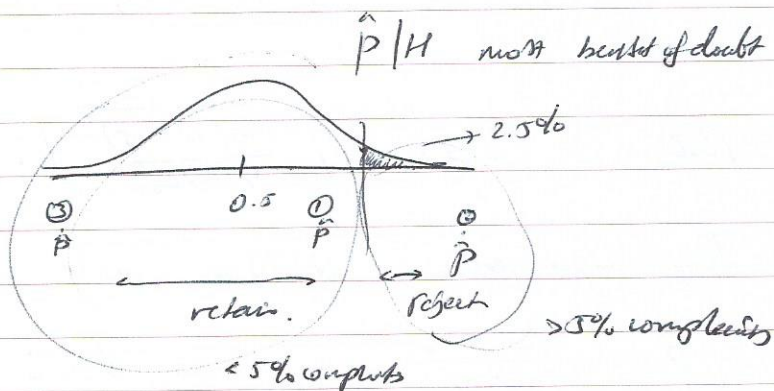 p̂ | H most benefit of doubt
→ 2.5%
0.5
③ ① ②
p̂ p̂ p̂
retain. reject
> 5% complaints
< 5% complaints